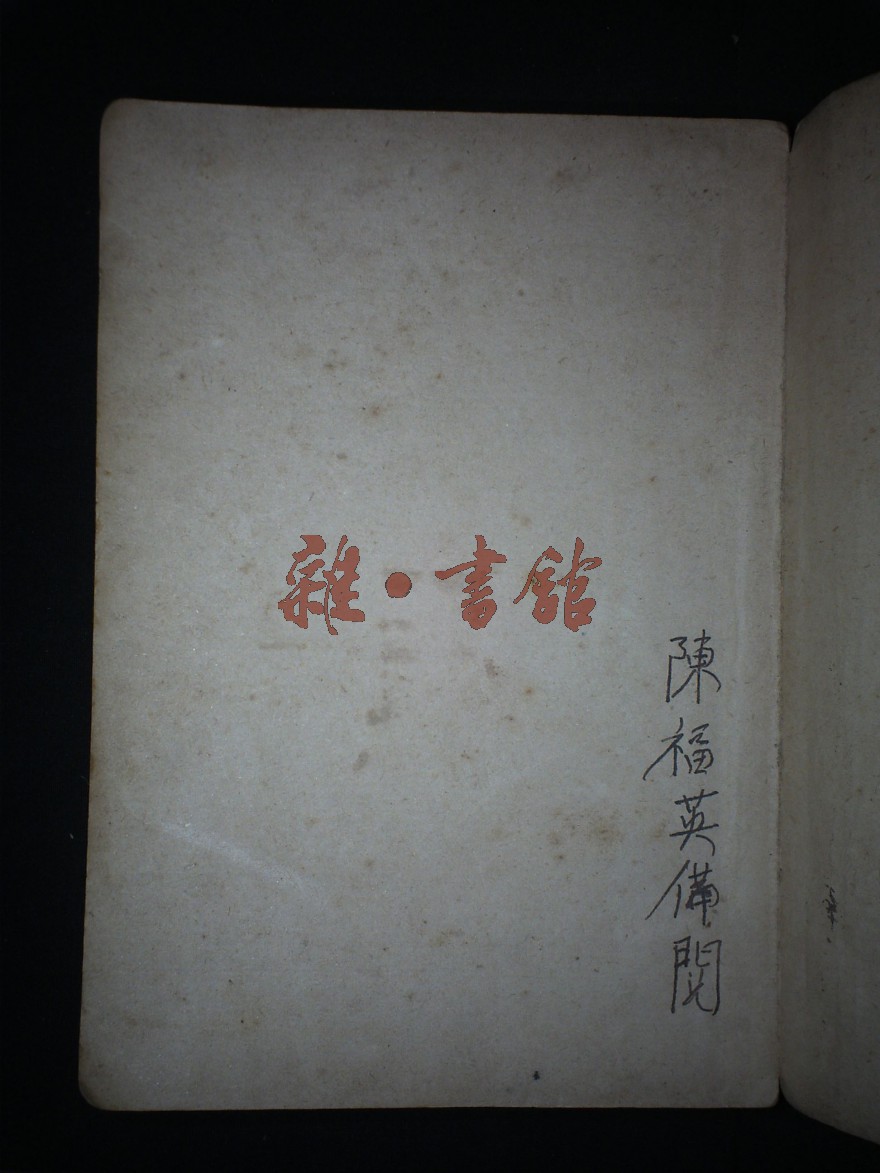 雜·書館
陳福英備閱